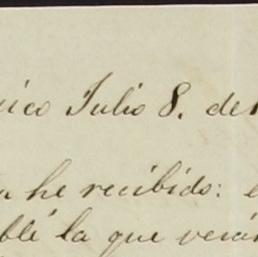 ico Julio 8. de
he recibido:
blé la que verán